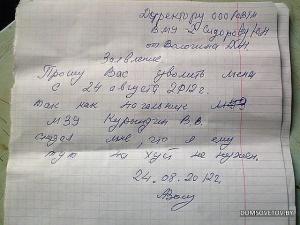 Директору ООО
от Вологина Д.Н.
Заявление
Прошу Вас уволить меня
с 24 августа 2012г.
так как начальник МЗУ
МЗУ Курындин В.В.
сказал мне, что я ему
тут на хуй не нужен.
24.08.2012г.
DOMSOVETOV.BY